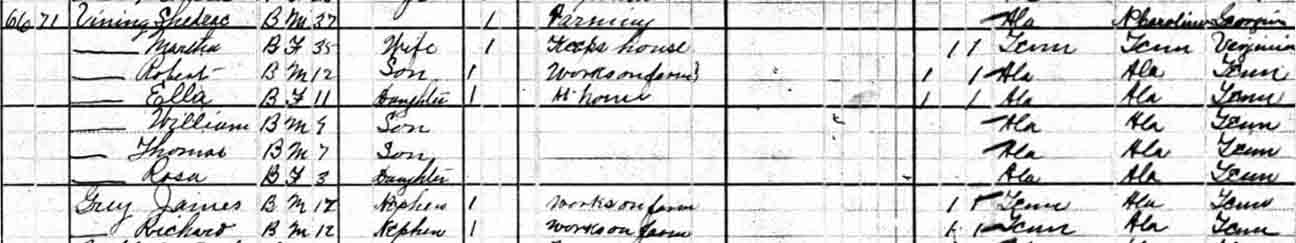 66 71 Vining Shedrac B M 37 1 Farming Ala N Carolina Georgia
— Martha B F 35 Wife 1 Keeps house 1 1 Tenn Tenn Virginia
— Robert B M 12 Son 1 Works on farm 1 1 Ala Ala Tenn
— Ella B F 11 Daughter 1 At home 1 1 Ala Ala Tenn
— William B M 9 Son Ala Ala Tenn
— Thomas B M 7 Son Ala Ala Tenn
— Rosa B F 3 Daughter Ala Ala Tenn
Grey James B M Nephew 1 Works on farm 1 1 Tenn Ala Tenn
— Richard B M 12 Nephew 1 Works on farm 1 1 Tenn Ala Tenn